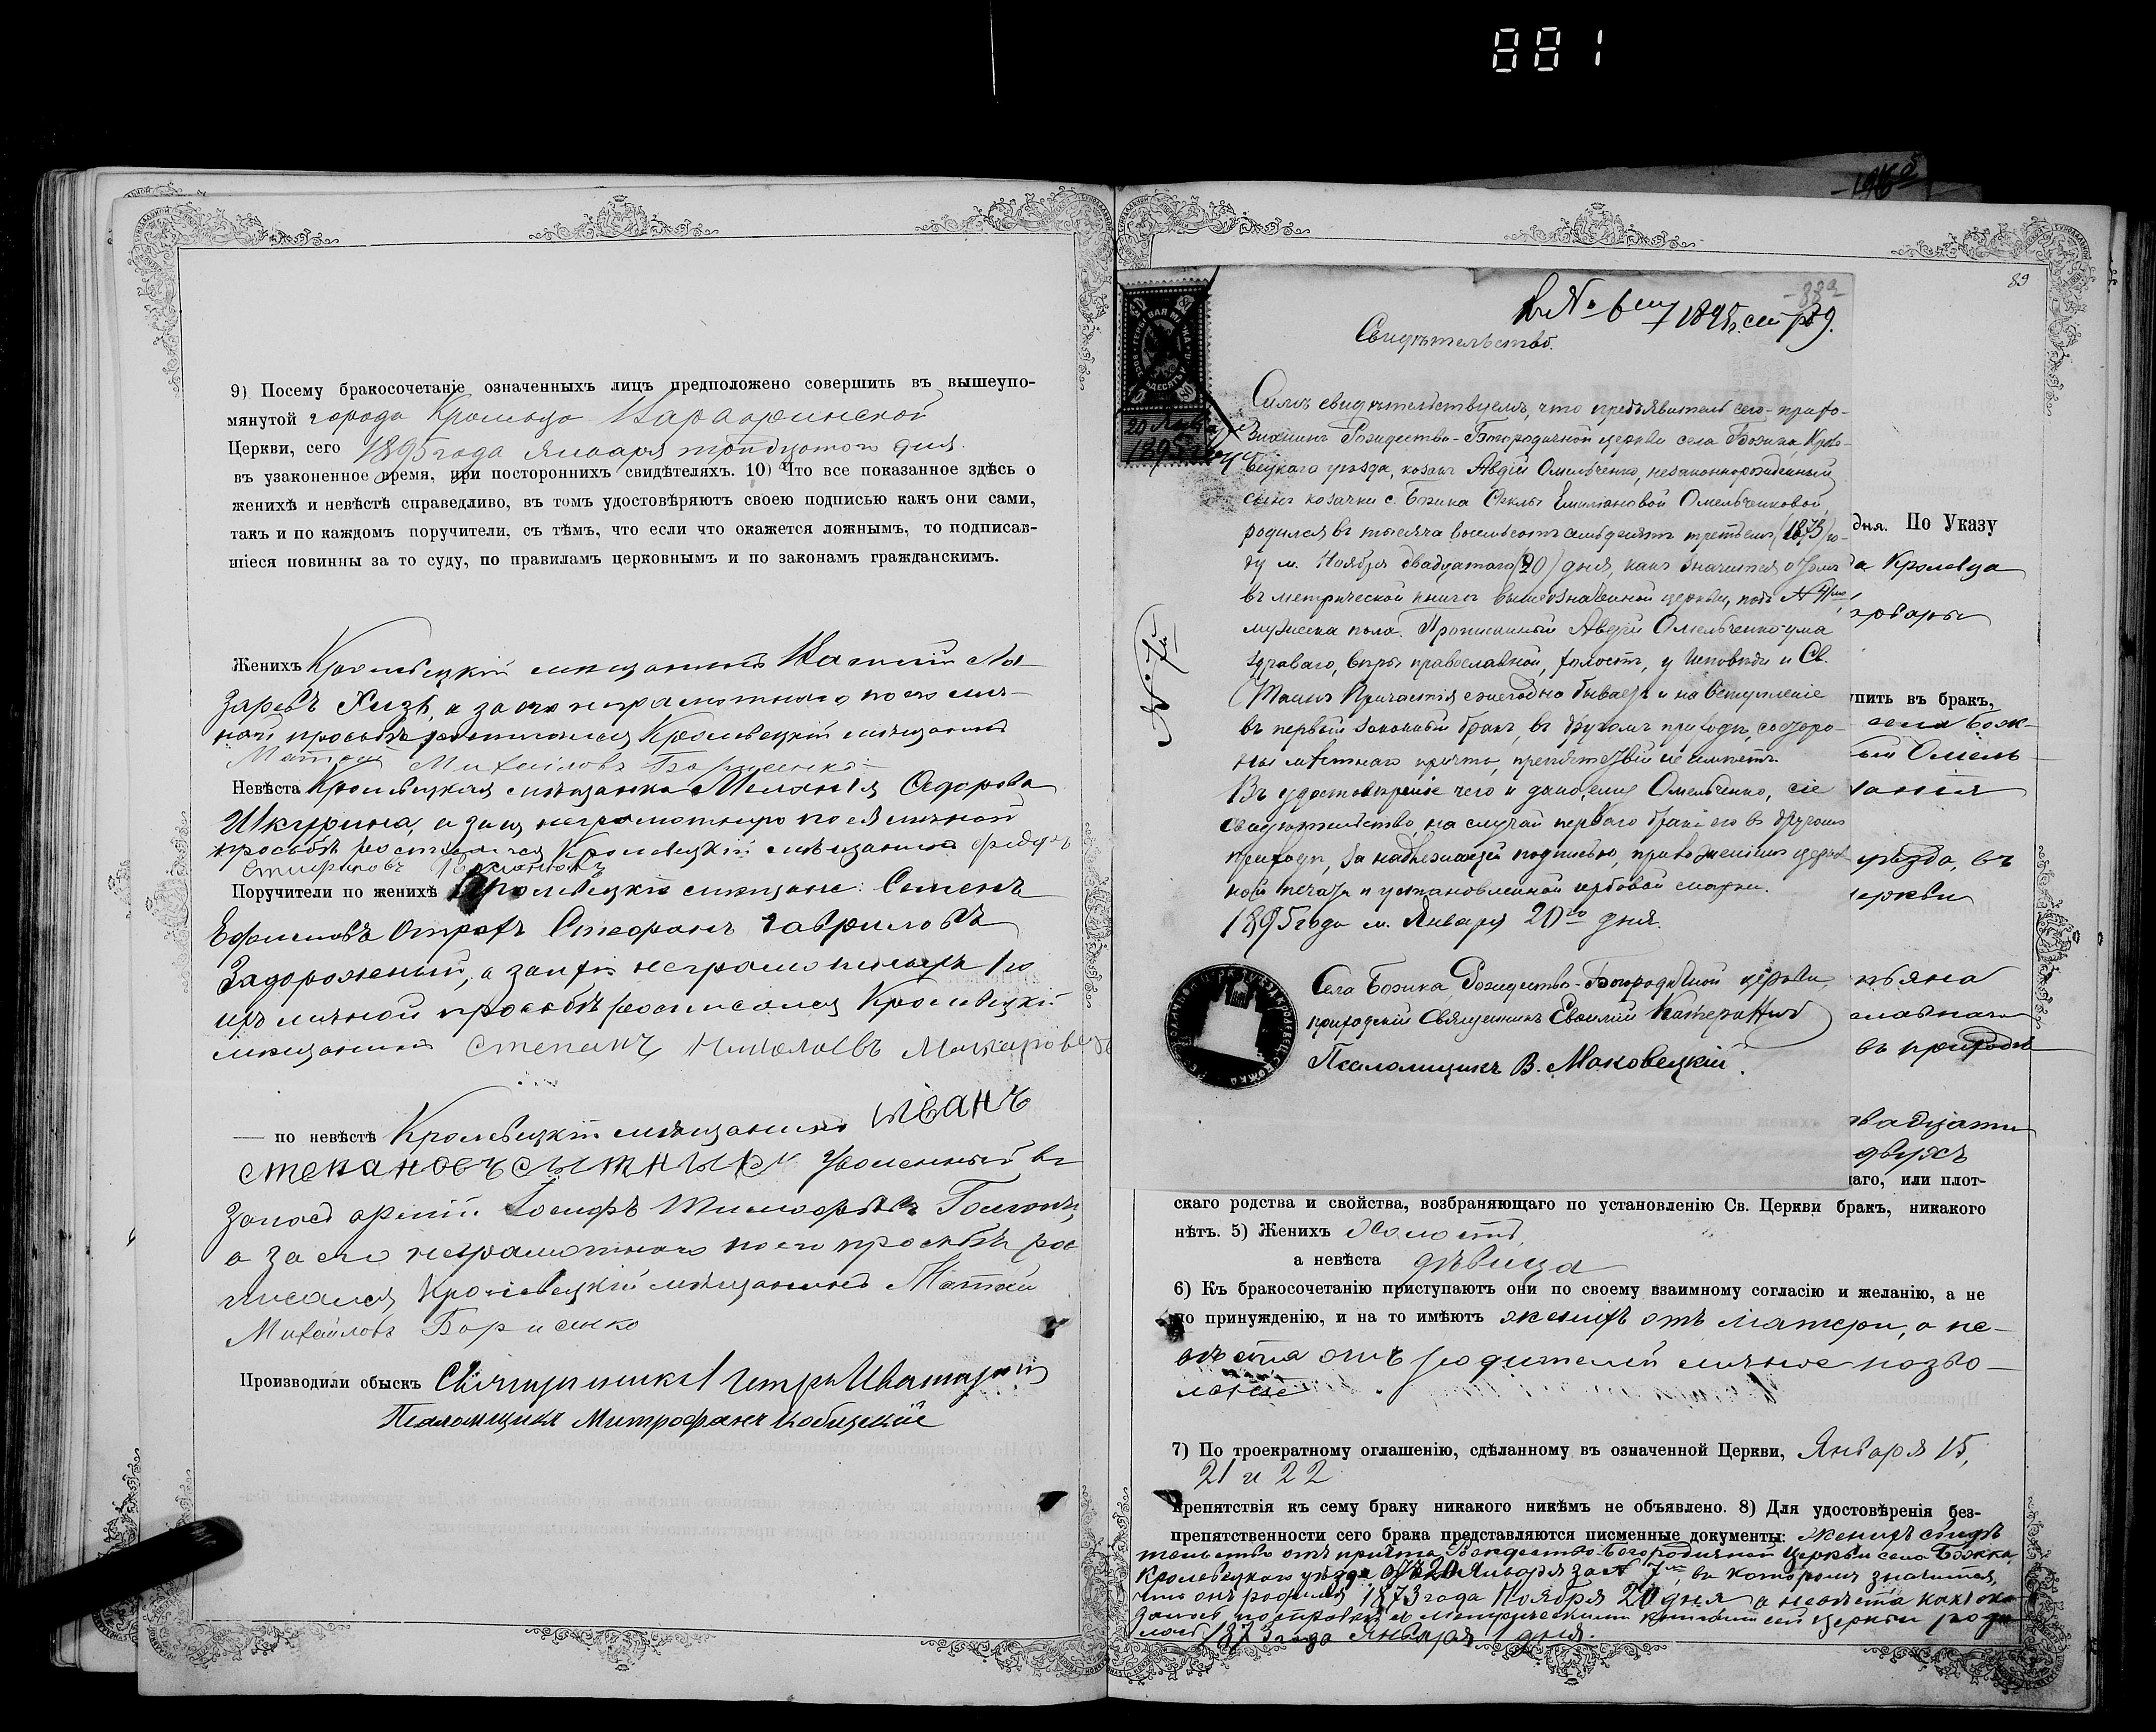 881
9) Посему бракосочетаніе означенныхъ лицъ предположено совершить въ вышеупо-
мянутой города Кролевца Варваринской
Церкви, сего 1895 года Января тридцатаго дня.
въ узаконенное время, при постороннихъ свидѣтеляхъ. 10) Что все показанное здѣсь о
женихѣ и невѣстѣ справедливо, въ томъ удостовѣряютъ своею подписью какъ они сами,
такъ и по каждомъ поручители, съ тѣмъ, что если что окажется ложнымъ, то подписав-
шіеся повинны за то суду, по правиламъ церковнымъ и по законамъ гражданскимъ.
Женихъ Кролевецкій мѣщанинъ
а за его неграмотнаго по его лич-
ной просьбѣ росписался Кролевецкій мѣщанинъ
Матѳей Михайловъ Борисенко
Невѣста Кролевецкая мѣщанка Меланія Сидорова
Шкурина, а за ея неграмотную по ея личной
просьбѣ росписался Кролевецкій мѣщанинъ Федоръ
Поручители по женихѣ Кролевецкіе мѣщане: Семенъ
Ефимовъ Стефанъ Гавриловъ
Задорожный, а за ихъ неграмотныхъ по
ихъ личной просьбѣ росписался Кролевецкій
мѣщанинъ Степанъ Николаевъ
— по невѣстѣ Кролевецкій мѣщанинъ Иванъ
Степановъ Сытныкъ Уволенный въ
запасъ арміи Іосифъ Тимофеевъ
а за его неграмотнаго по его просьбѣ рос
писался Кролевецкій мѣщанинъ Матѳей
Михайловъ Борисенко
Производили обыскъ Священникъ Петръ
Псаломщикъ Митрофанъ
89
88а
Къ № 6 1895 г.
Свидѣтельство.
20 Янв
1895
Симъ свидѣтельствуемъ, что предъявитель сего прихо-
жанинъ Рождество-Богородичной церкви села Божка, Кроле-
вецкаго уѣзда, козакъ Авдій Омельченко, незаконнорожденный
сынъ козачки с. Божка Ѳеклы Емиліановой Омельченковой,
родился въ тысяча восемьсотъ семьдесятъ третьемъ (1873) го-
ду м. Ноября двадцатаго (20) дня, какъ значится о семъ
въ метрической книгѣ вышеозначенной церкви, подъ №
мужеска пола. Прописанный Авдій Омельченко ума
здраваго, вѣры православной, холостъ, у Исповѣди и Св.
Таинъ Причастія ежегодно бываетъ и на вступленіе
въ первый законный бракъ, въ другомъ приходѣ, со сторо-
ны мѣстнаго причта, препятствій не имѣетъ.
Въ удостовѣреніе чего и дано ему Омельченко, сіе
свидѣтельство, на случай перваго брака его въ другомъ
приходѣ, за надлежащей подписью, приложеніемъ церков
ной печати и установленной гербовой марки.
1895 года м. Января 20го дня.
№ 7
Села Божка Рождество-Богородичной церкви,
приходскій Священникъ Евфимій
Псаломщикъ В. Маковецкій.
дня. По Указу
да Кролевца
упить въ бракъ,
села Бож-
ый Омель
ланія
уѣзда, въ
церкви
славнаго
въ приходѣ
двадцати
двухъ
наго, или плот-
скаго родства и свойства, возбраняющаго по установленію Св. Церкви бракъ, никакого
нѣтъ. 5) Женихъ холостъ,
а невѣста дѣвица
6) Къ бракосочетанію приступаютъ они по своему взаимному согласію и желанію, а не
по принужденію, и на то имѣютъ женихъ отъ матери, а не-
вѣста отъ родителей личное позво-
леніе
7) По троекратному оглашенію, сдѣланному въ означенной Церкви, Января 15,
21 и 22
препятствія къ сему браку никакого никѣмъ не объявлено. 8) Для удостовѣренія без-
препятственности сего брака представляются писменные документы: женихъ свидѣ
тельство отъ причта Рождество-Богородичной церкви села Божка,
Кролевецкаго уѣзда отъ 20 Января за № 7мъ, въ которомъ значится,
что онъ родился 1873 года Ноября 20 дня, а невѣста какъ ока
залось по справкѣ съ метрическими книгами сей церкви роди
лась 1873 года Января 1 дня.